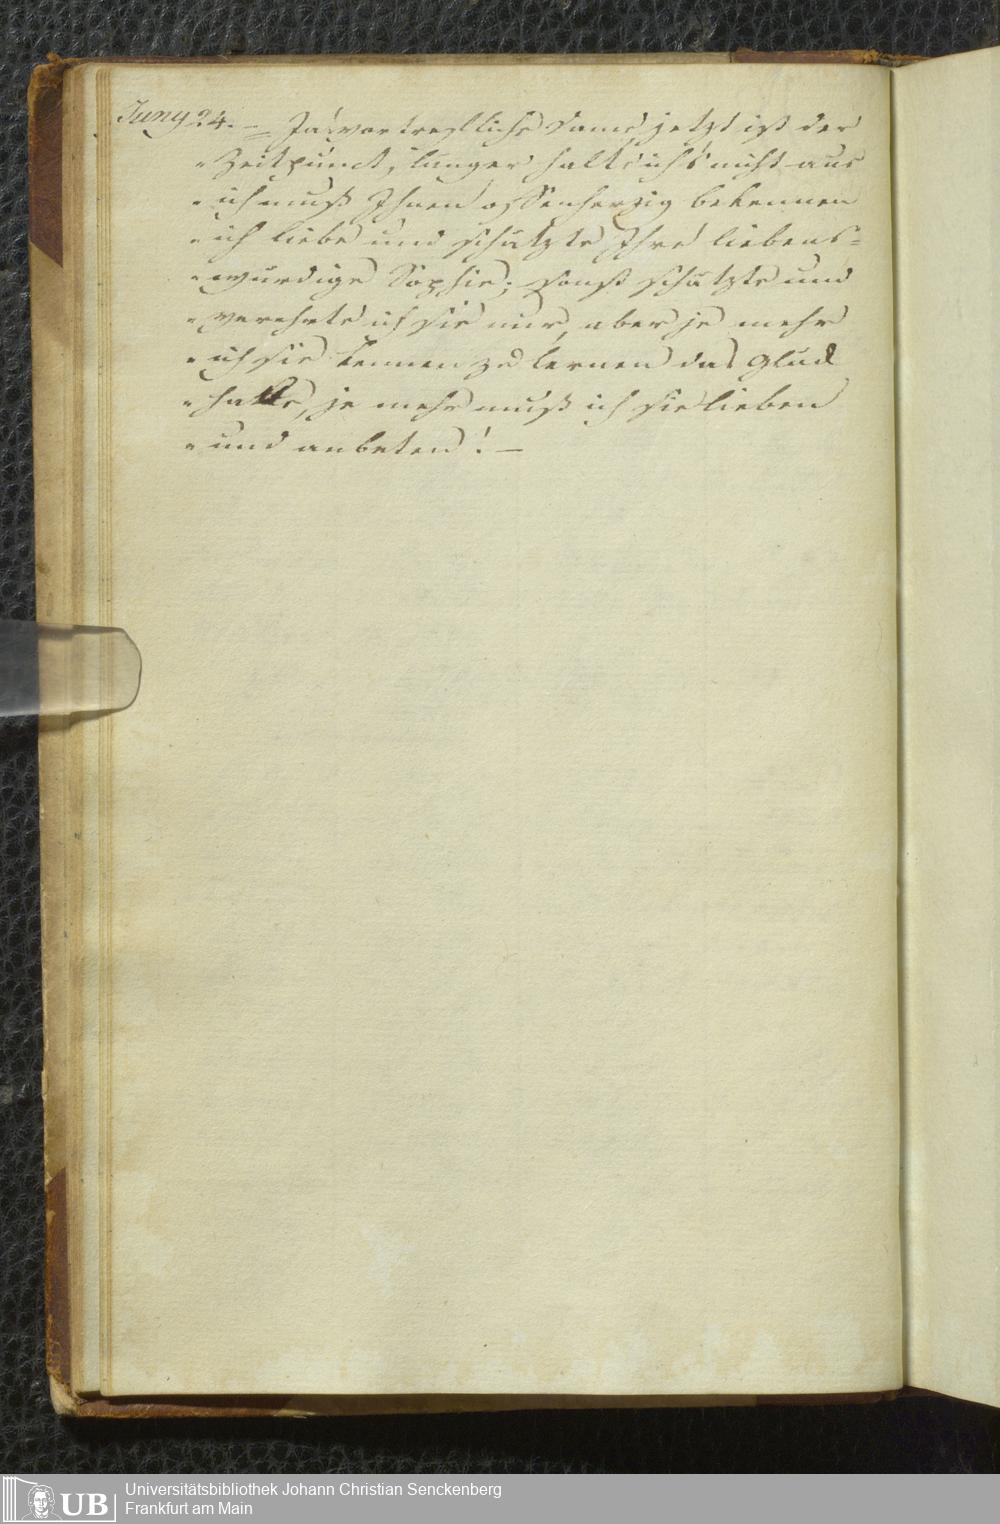 Juny 24. – Ja! vortrefliche Dame, jetzt ist der
" Zeitpunct, länger halt' ich's nicht aus
" ich muß Ihnen offenherzig bekennen
" ich liebe und schätzte Ihre liebens=
" würdige Sophie; sonst schätzte und
" verehrte ich sie nur, aber je mehr
" ich sie kennen zu lernen das Glück
" hatte, je mehr muß ich sie lieben
" und anbeten! –
UB
Universitätsbibliothek Johann Christian Senckenberg
Frankfurt am Main